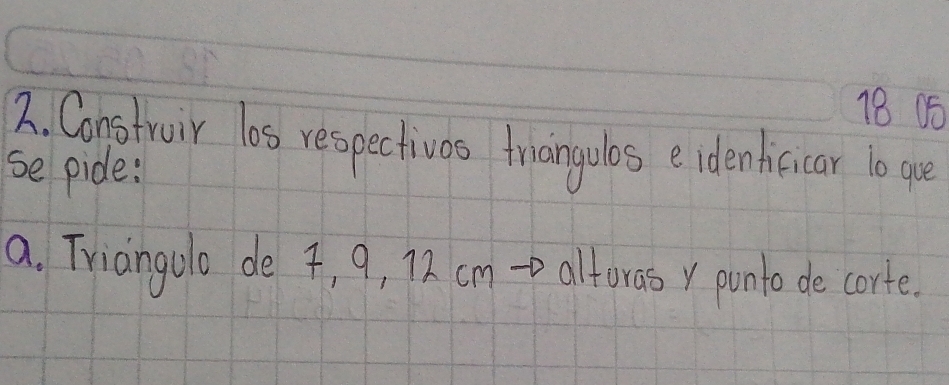 18 05
2. Construir los respectivos triángulos e identificar lo que
se pide:
a. Triángulo de 7, 9, 12 cm → alturas y punto de corte.